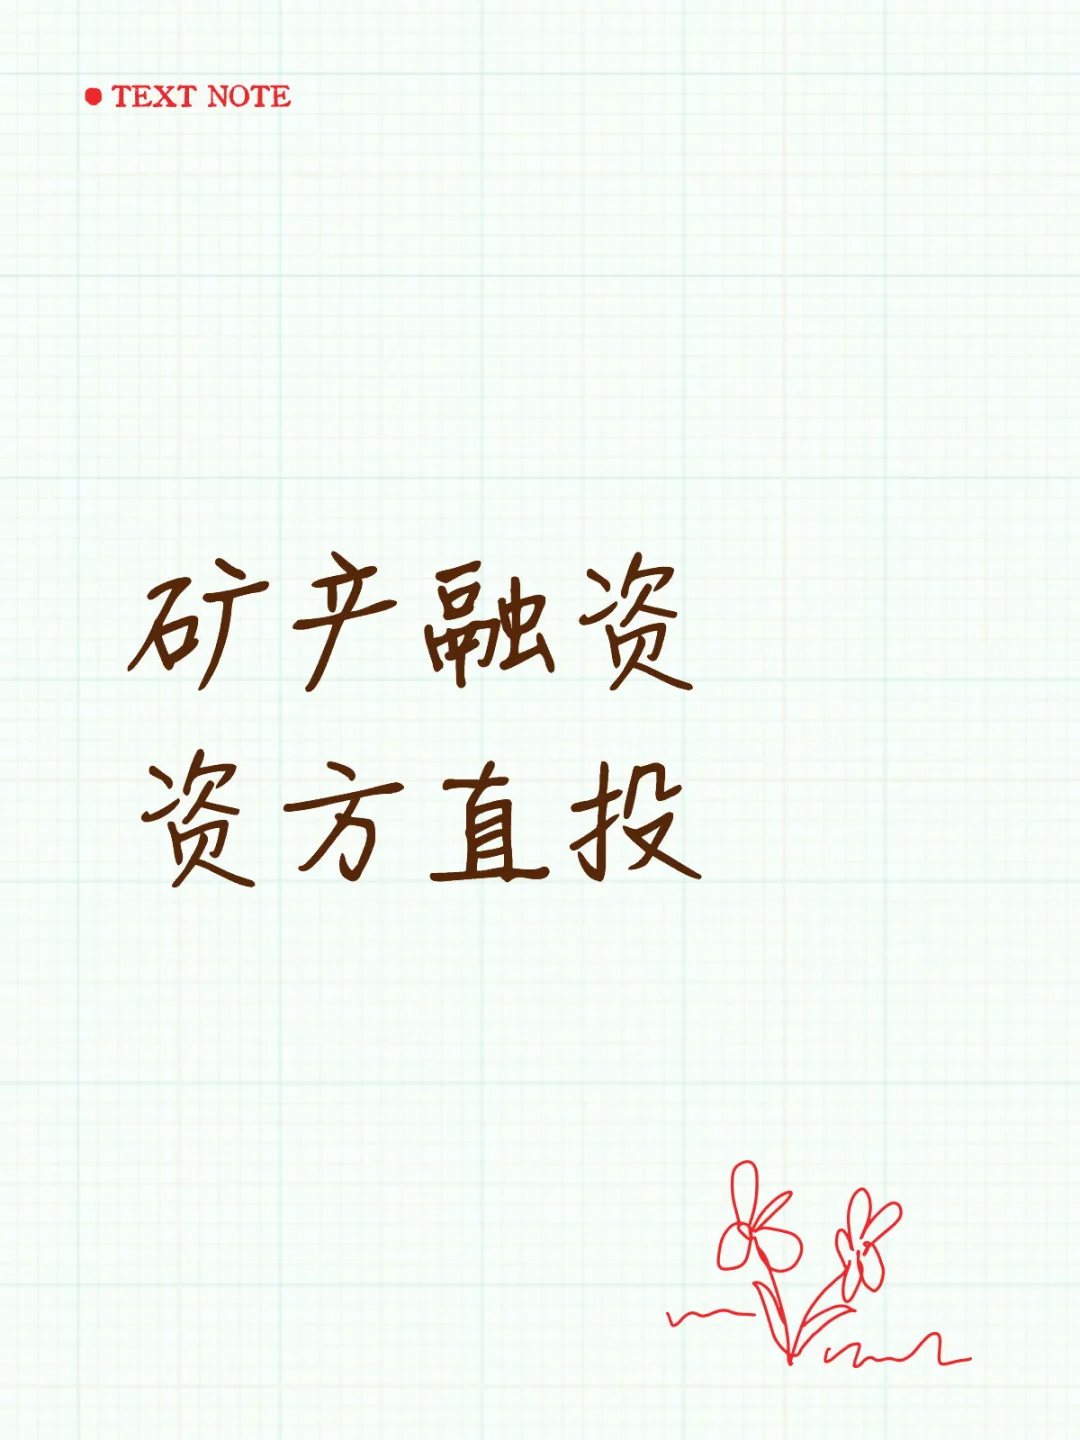 TEXT NOTE
矿产融资
资方直投